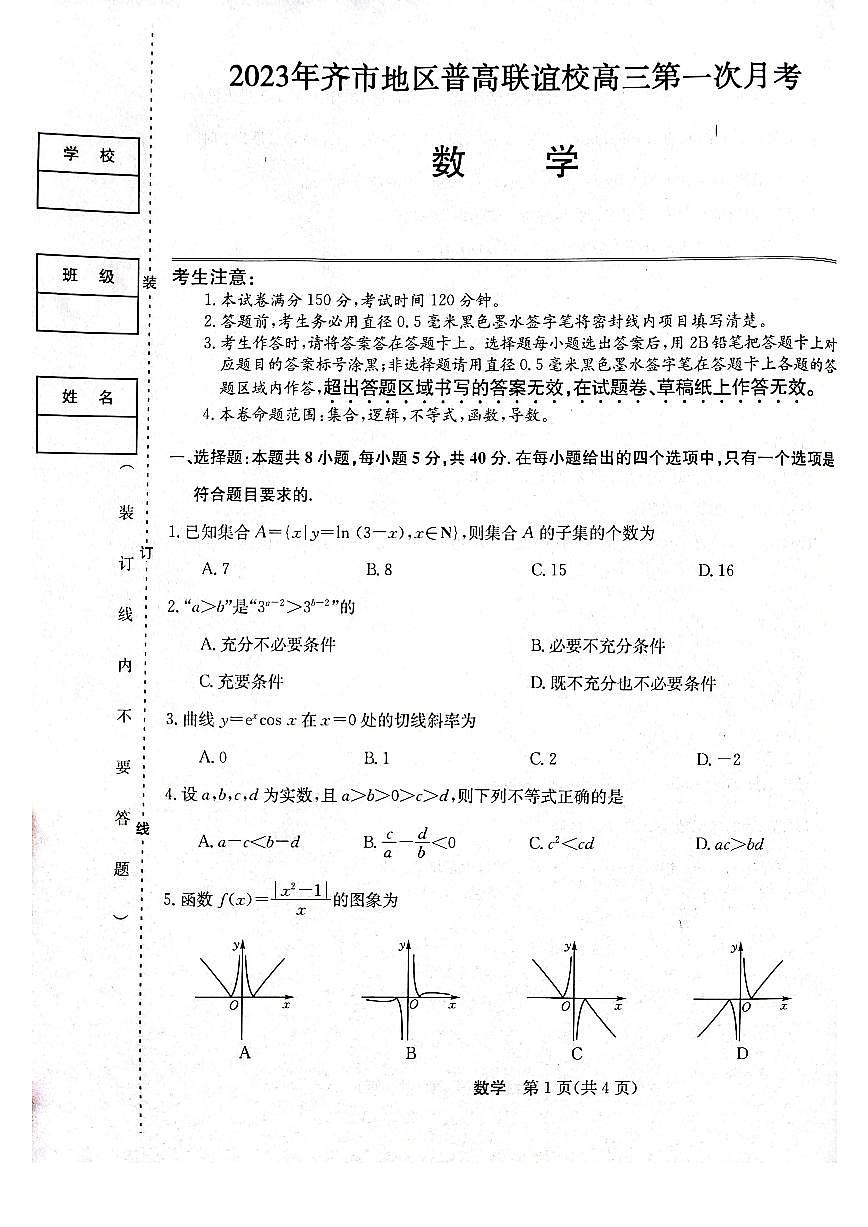 2023年齐市地区普高联谊校高三第一次月考
数 学
学 校
班 级
姓 名
装
订
线
(装订线内不要答题)
考生注意:
1.本试卷满分150分,考试时间120分钟。
2.答题前,考生务必用直径0.5毫米黑色墨水签字笔将密封线内项目填写清楚。
3.考生作答时,请将答案答在答题卡上。选择题每小题选出答案后,用2B铅笔把答题卡上对
应题目的答案标号涂黑;非选择题请用直径0.5毫米黑色墨水签字笔在答题卡上各题的答
题区域内作答,超出答题区域书写的答案无效,在试题卷、草稿纸上作答无效。
4.本卷命题范围:集合,逻辑,不等式,函数,导数。
一、选择题:本题共8小题,每小题5分,共40分.在每小题给出的四个选项中,只有一个选项是
符合题目要求的.
1.已知集合A={x|y=ln (3-x),x∈N},则集合A的子集的个数为
A.7 B.8 C.15 D.16
2.“a>b”是“3^{a-2}>3^{b-2}”的
A.充分不必要条件 B.必要不充分条件
C.充要条件 D.既不充分也不必要条件
3.曲线y=e^x cos x在x=0处的切线斜率为
A.0 B.1 C.2 D.-2
4.设a,b,c,d为实数,且a>b>0>c>d,则下列不等式正确的是
A.a-c<b-d B.c/a-d/b<0 C.c²<cd D.ac>bd
5.函数f(x)=|x²-1|/x的图象为
y O x y O x y O x y O x
A B C D
数学 第1页(共4页)